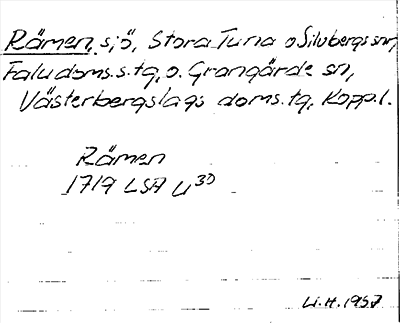 Rämen, sjö, Stora Tuna o Silvbergs snr,
Falu doms.s.tg, o. Grangärde sn,
Västerbergslags doms.tg, Kopp.l.
Rämen
1719 LSA U30
U.H. 1957